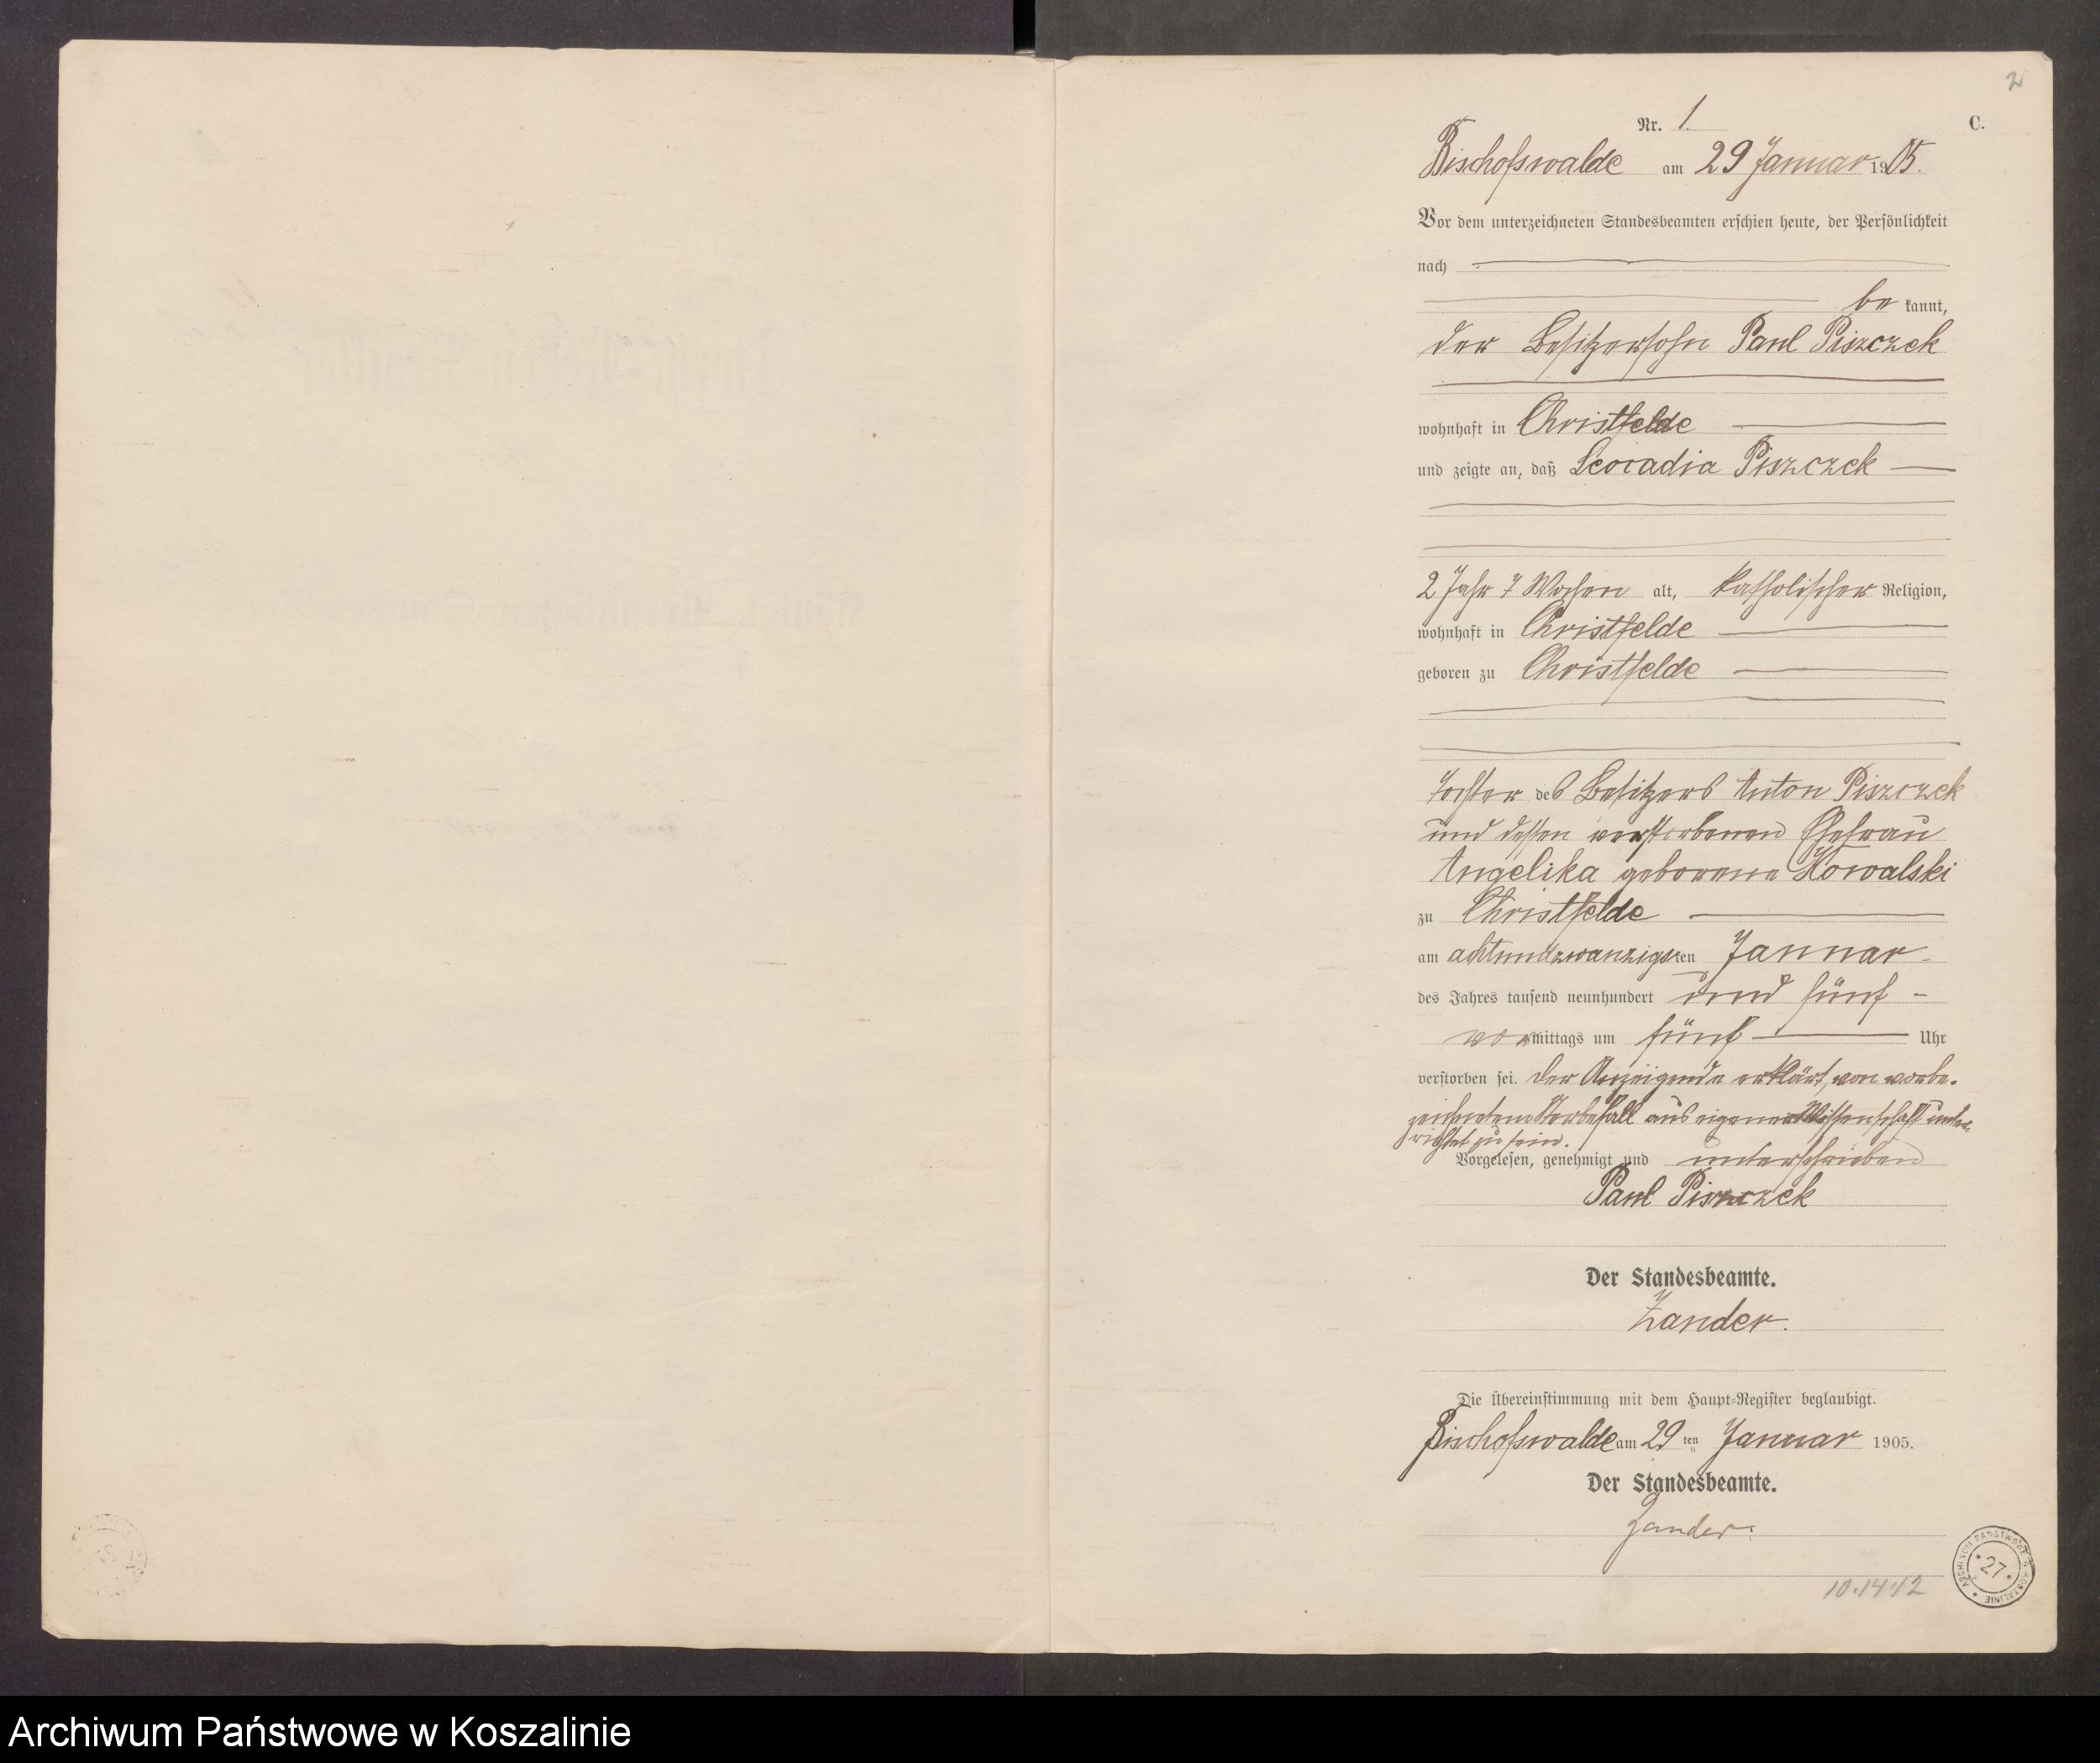 2
Nr. 1. C.
Bischofswalde am 29 Januar 1905.
Vor dem unterzeichneten Standesbeamten erschien heute, der Persönlichkeit
nach
be kannt,
der Besitzersohn Paul Piszczek
wohnhaft in Christfelde
und zeigte an, daß Leocadia Piszczek
2 Jahr 7 Wochen alt, katholischer Religion,
wohnhaft in Christfelde
geboren zu Christfelde
Tochter des Besitzers Anton Piszczek
und dessen verstorbenen Ehefrau
Angelika geborene Kowalski
zu Christfelde
am achtundzwanzigsten Januar
des Jahres tausend neunhundert und fünf
vormittags um fünf Uhr
verstorben sei. Der Anzeigende erklärt, von vorbe-
zeichnetem Sterbefall aus eigener Wissenschaft unter-
richtet zu sein.
Vorgelesen, genehmigt und unterschrieben
Paul Piszczek
Der Standesbeamte.
Zander.
Die Übereinstimmung mit dem Haupt-Register beglaubigt.
Bischofswalde am 29 ten Januar 1905.
Der Standesbeamte.
Zander.
10.14.12
ARCHIWUM PAŃSTWOWE W KOSZALINIE
* 27 *
Archiwum Państwowe w Koszalinie